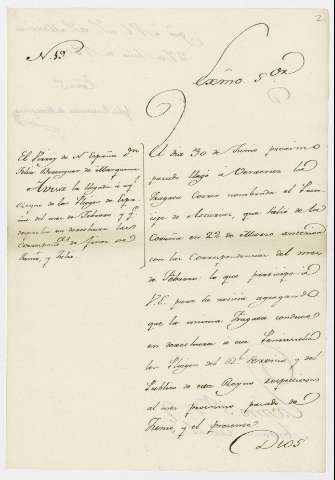 N. 59
Exmo. Sor.
El Virrey de N. España Dn.
Felix Berenguer de Marquina
Avisa la llegada á aq.
de los Pliegos de Espa
ña del mes de Febrero y q.e
en derechura las
correspond.s de fines de
Junio, y Julio.
El dia 30 de Junio proximo
pasado llegó á Veracruz la
Fragata Correo nombrada el Prin
cipe de Asturias, que salió de la
Coruña en 22 de Marzo anterior
con la Correspondencia del mes
de Febrero: lo que participo á
V.E. para su noticia agregando
que la misma Fragata conduce
en derechura á esa Peninsula
los Pliegos del Rl. Servicio y del
Publico de este Reyno respectivos
al mes proximo pasado de
Junio, y el presente.
Dios